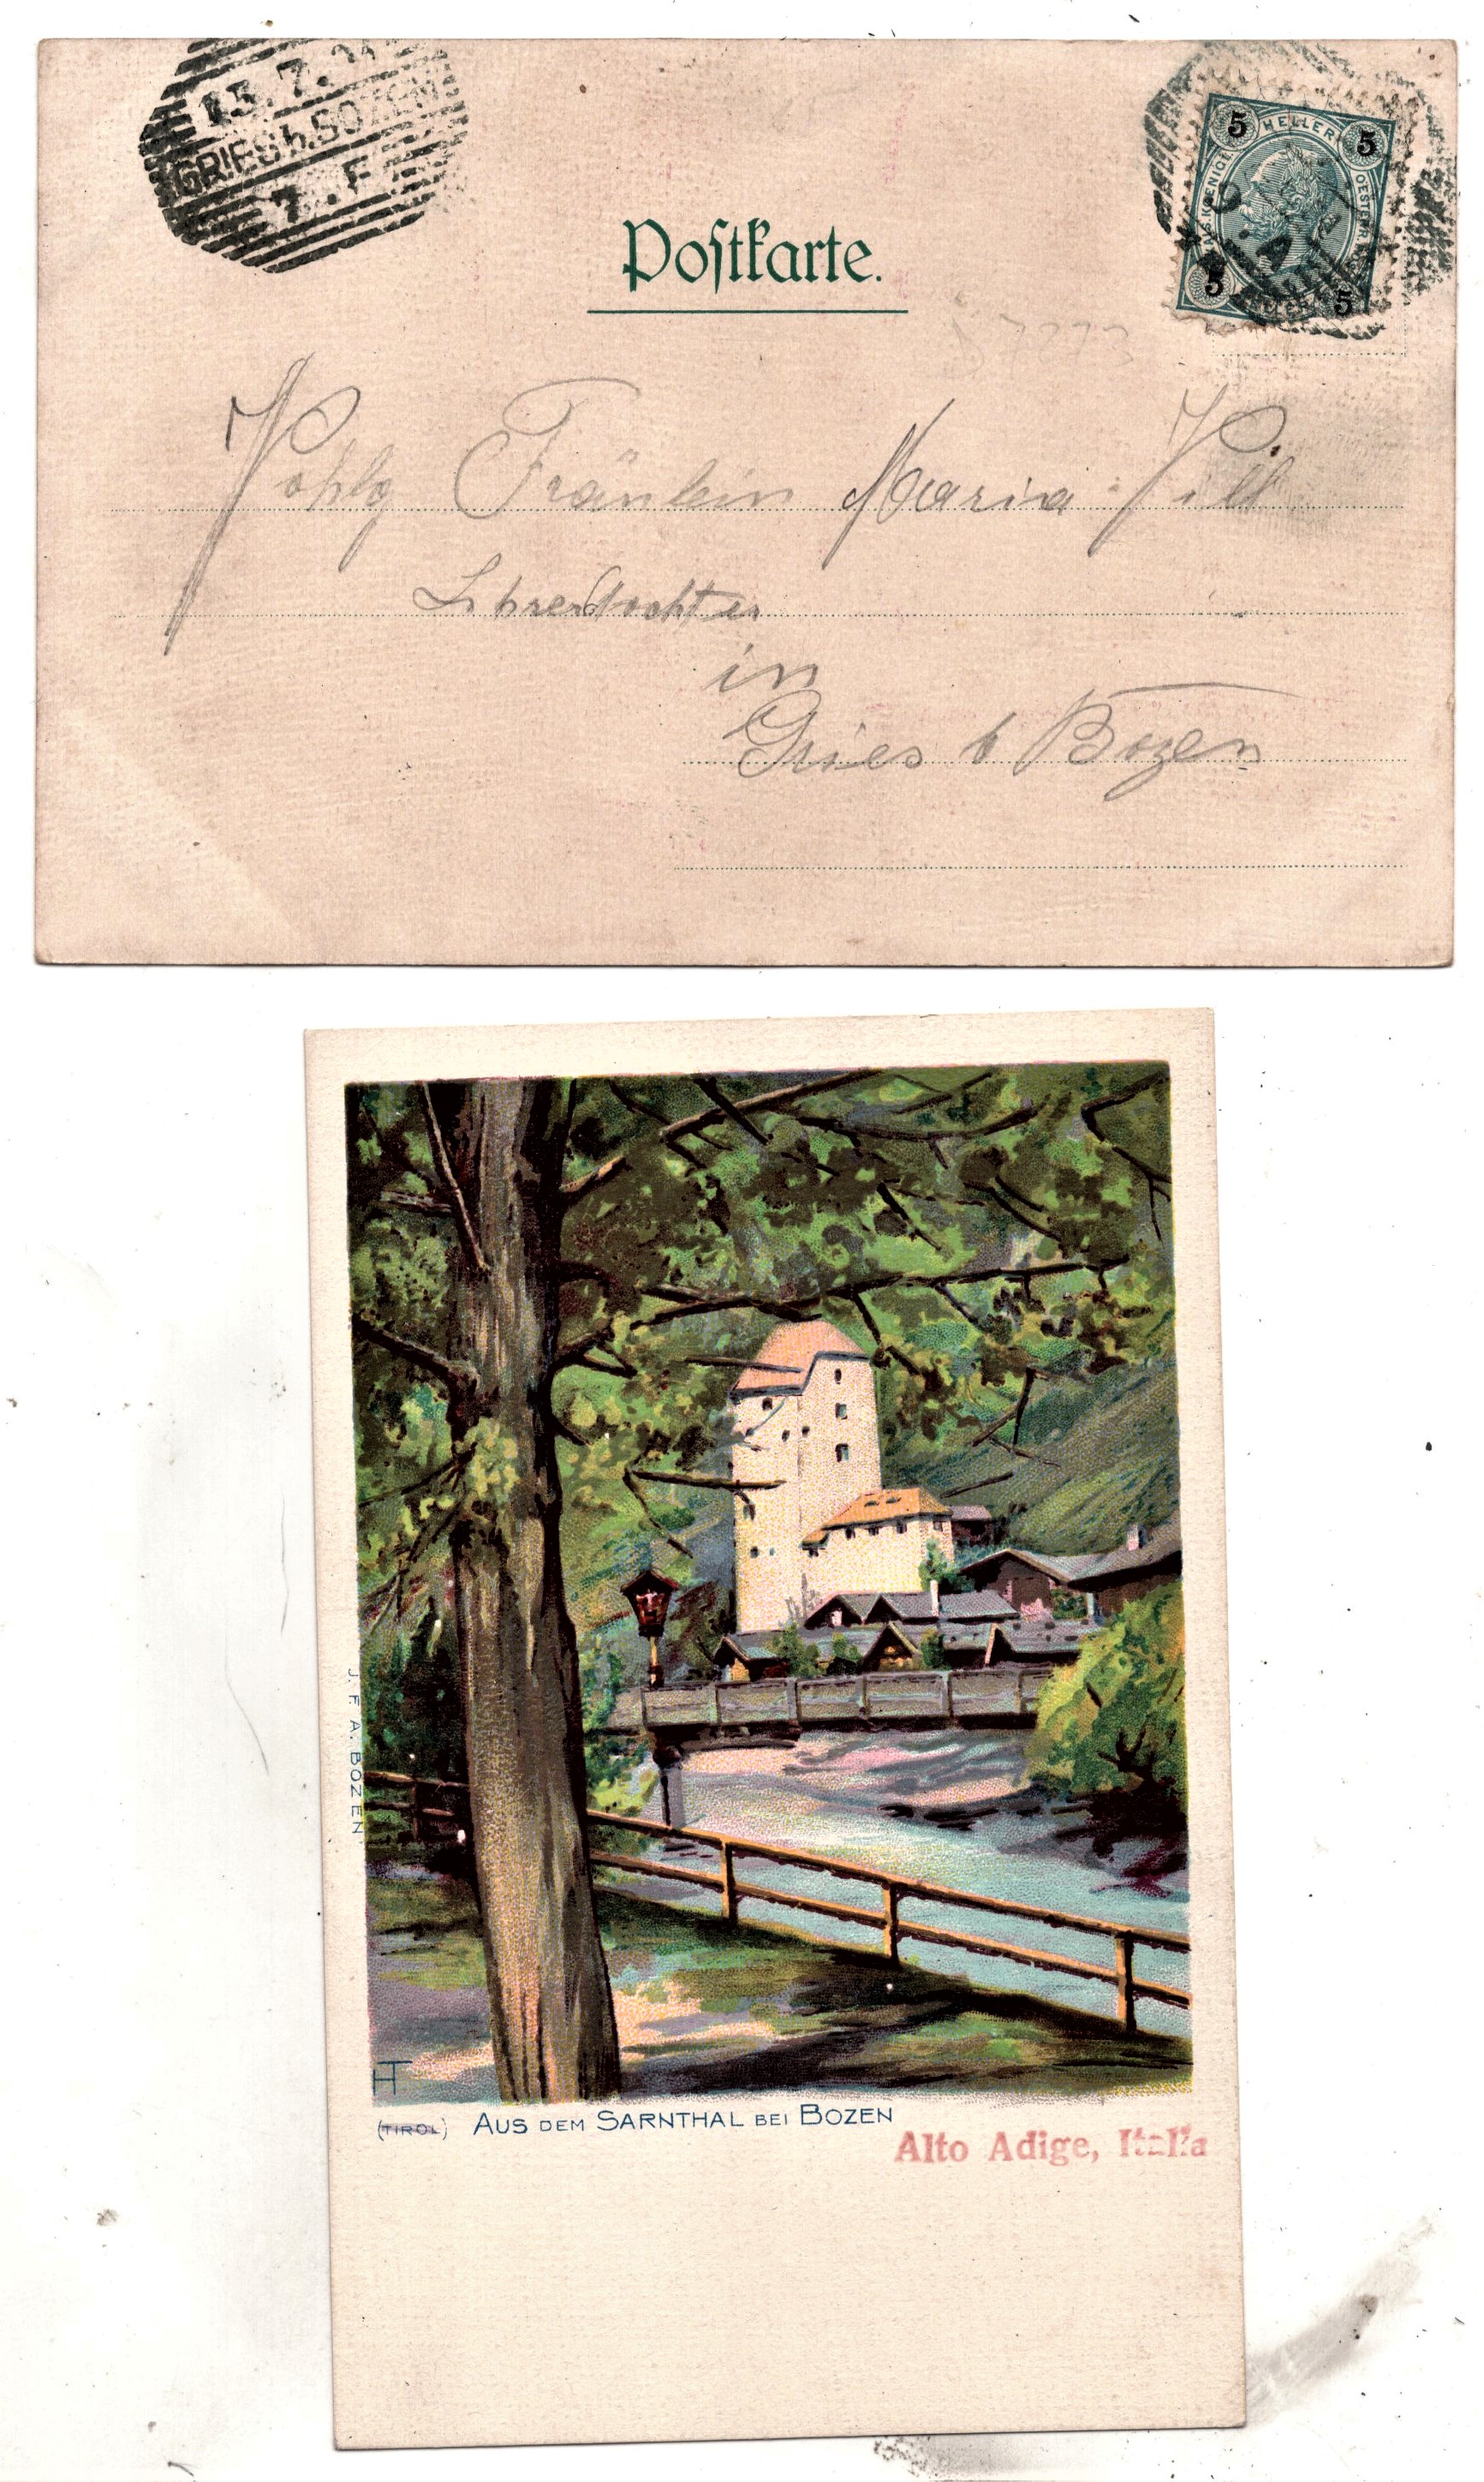 15. 7.
GRIES b. BOZEN
7. F
Postkarte.
5 HELLER 5
5 5
Wohlg Fräulein Maria
Lehrerstochter
in
Gries b Bozen
J. F. A. BOZEN
HT
(TIROL) AUS DEM SARNTHAL BEI BOZEN
Alto Adige, Italia